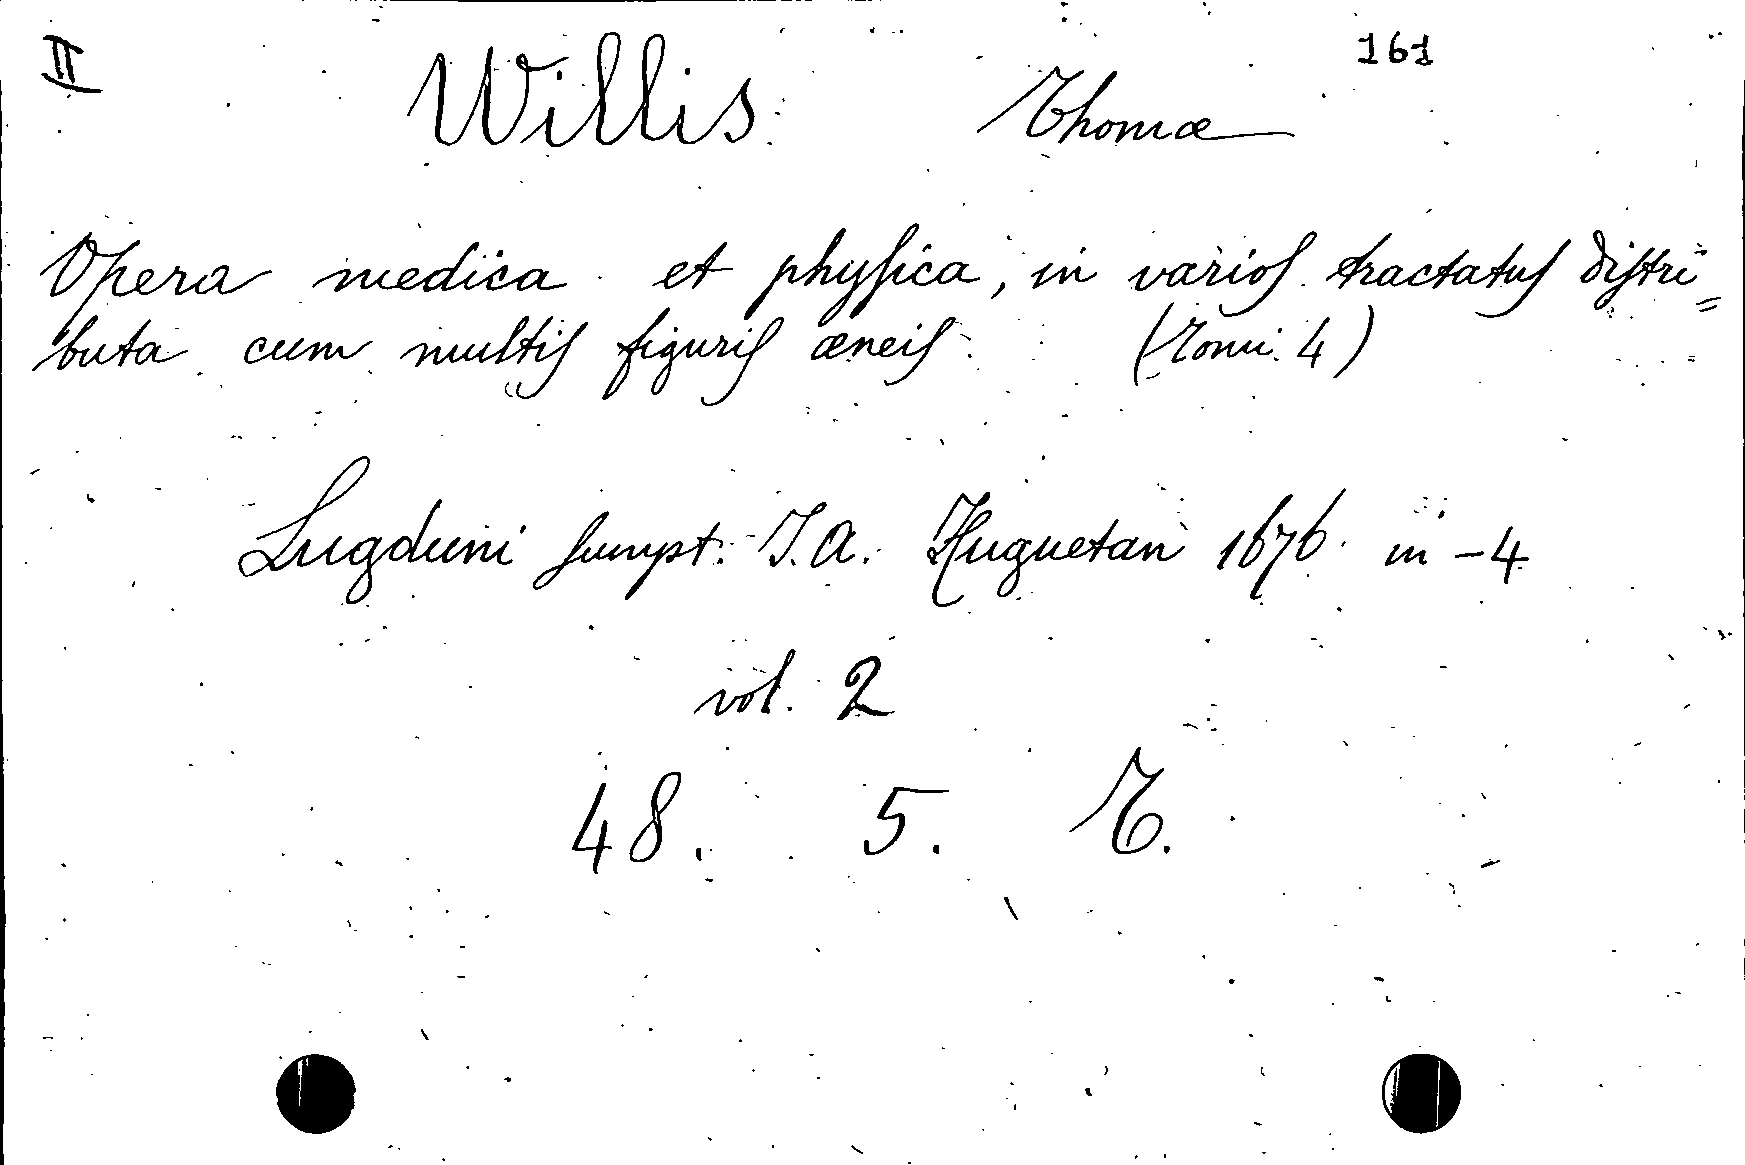 II Willis Thomæ 161
Opera medica et phyſica, in varioſ tractatuſ diſtri=
buta cum multiſ figuriſ æneiſ (Tomi 4)
Lugduni ſumpt. J. A. Huguetan 1676 in-4
vol. 2
48. 5. T.